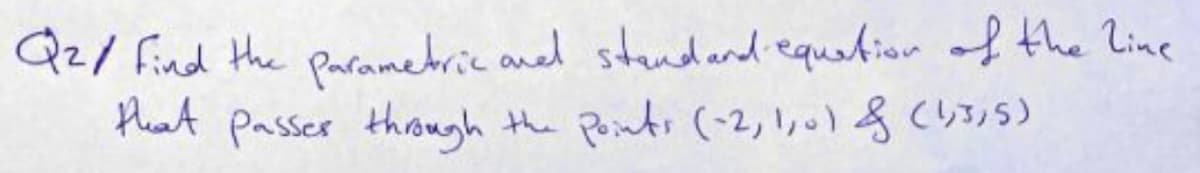 Q2/ Find the parametric and standard equation of the line
that passes through the points (-2,1,0) & (1,3,5)